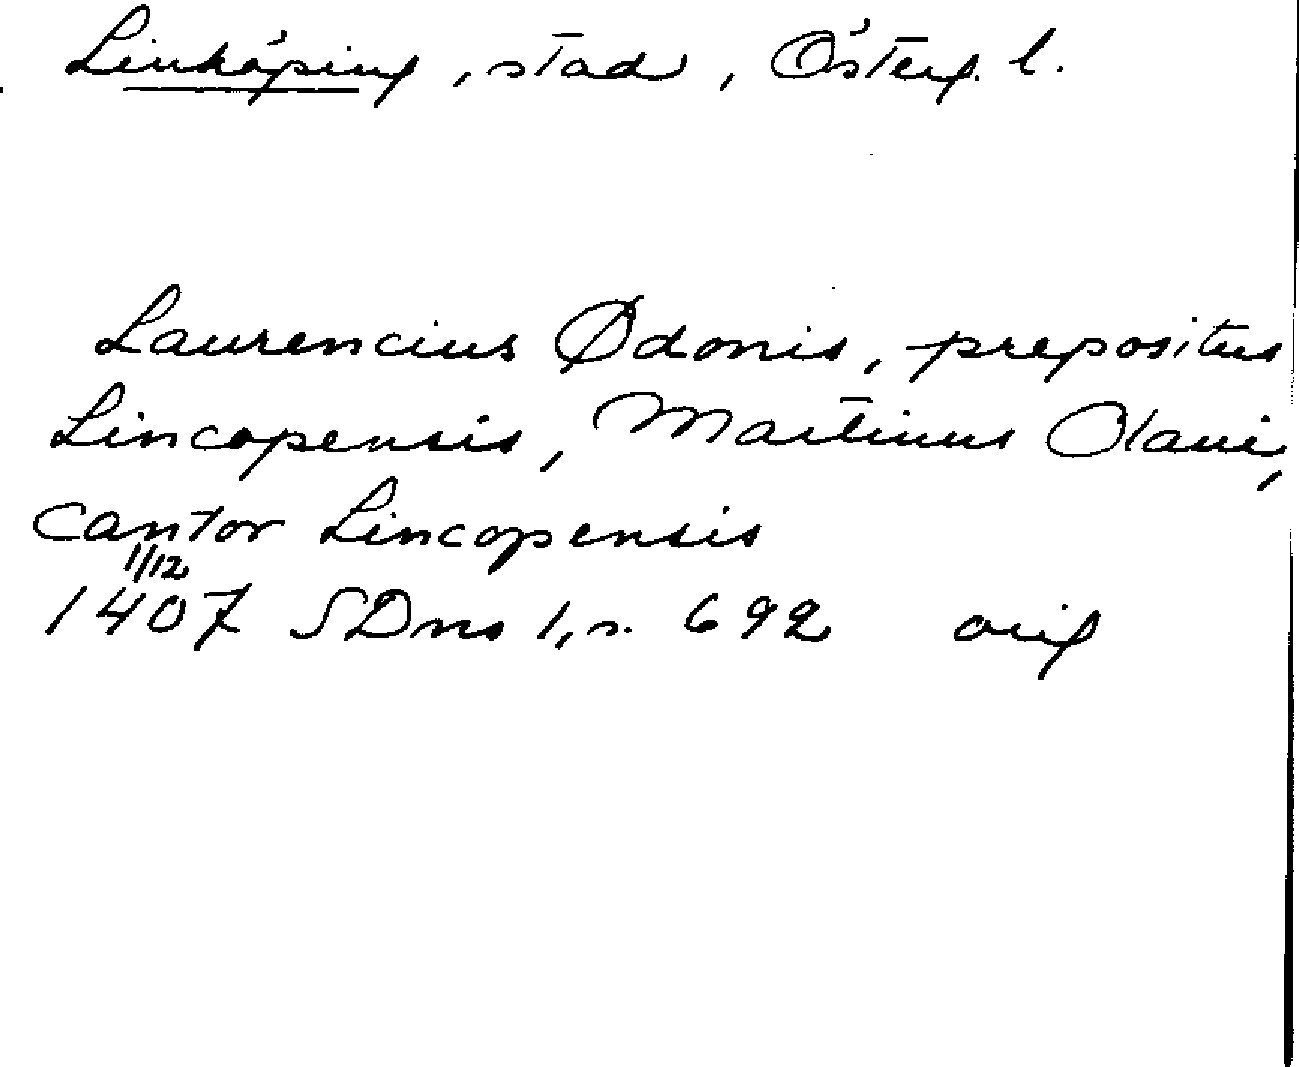 Linköping, stad, Österg. l.
Laurencius Ødonis, prepositus
Lincopensis, Martinus Olaui,
cantor Lincopensis
1/12
1407 SDns 1, s. 692 orig